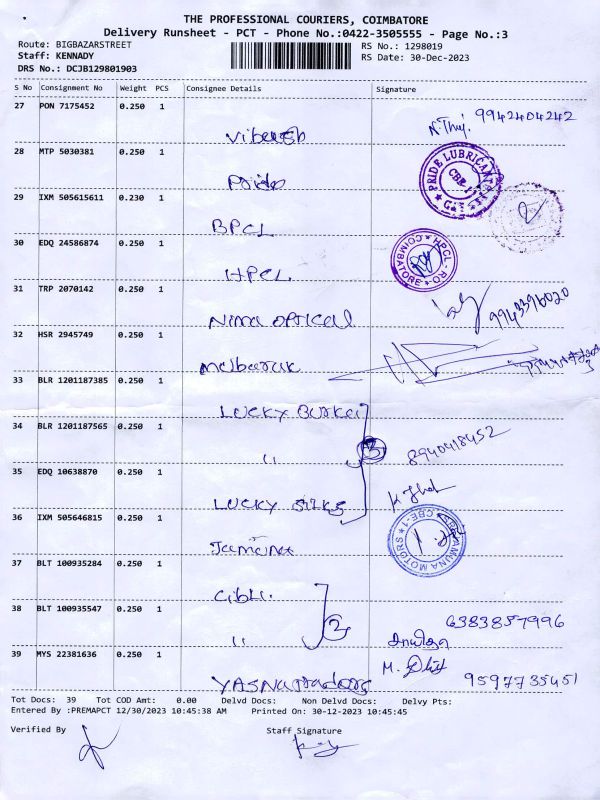 THE PROFESSIONAL COURIERS, COIMBATORE
Delivery Runsheet - PCT - Phone No.:0422-3505555 - Page No.:3
Route: BIGBAZARSTREET
Staff: KENNADY
DRS No.: DCJB129801903
RS No.: 1298019
RS Date: 30-Dec-2023
S No Consignment No Weight PCS Consignee Details Signature
27 PON 7175452 0.250 1
9942404242
28 MTP 5030381 0.250 1
Pride
PRIDE LUBRICANTS
29 IXM 505615611 0.230 1
BPCL
30 EDQ 24586874 0.250 1
HPCL
COIMBATORE HPCL
31 TRP 2070142 0.250 1
Nima OPTICAL
9943396020
32 HSR 2945749 0.250 1
33 BLR 1201187385 0.250 1
LUCKY
34 BLR 1201187565 0.250 1
"
3
8940418452
35 EDQ 10638870 0.250 1
LUCKY SILKS
36 IXM 505646815 0.250 1
JAMUNA MOTORS CBE-1
37 BLT 100935284 0.250 1
38 BLT 100935547 0.250 1
"
2
6383857996
39 MYS 22381636 0.250 1
M.
9597735451
Tot Docs: 39 Tot COD Amt: 0.00 Delvd Docs: Non Delvd Docs: Delvy Pts:
Entered By :PREMAPCT 12/30/2023 10:45:38 AM Printed On: 30-12-2023 10:45:45
Verified By Staff Signature